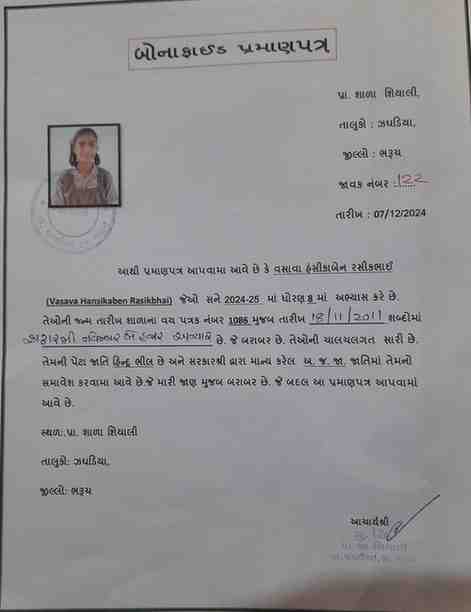 બોનાફાઈડ પ્રમાણપત્ર
પ્રા. શાળા શિયાલી,
તાલુકો : ઝઘડિયા,
જીલ્લો : ભરૂચ
જાવક નંબર :122
તારીખ : 07/12/2024
આથી પ્રમાણપત્ર આપવામા આવે છે કે વસાવા હંસીકાબેન રસીકભાઈ
(Vasava Hansikaben Rasikbhai) જેઓ સને 2024-25 માં ધોરણ 8 માં અભ્યાસ કરે છે.
તેઓની જન્મ તારીખ શાળાના વય પત્રક નંબર 1086 મુજબ તારીખ 18/11/2011 શબ્દોમાં
અઢારમી નવેમ્બર બે હજાર અગ્યાર છે. જે બરાબર છે. તેઓની ચાલચલગત સારી છે.
તેમની પેટા જાતિ હિન્દુ ભીલ છે અને સરકારશ્રી દ્વારા માન્ય કરેલ અ. જ. જા. જાતિમાં તેમનો
સમાવેશ કરવામા આવે છે.જે મારી જાણ મુજબ બરાબર છે. જે બદલ આ પ્રમાણપત્ર આપવામાં
આવે છે.
સ્થળ:.પ્રા. શાળા શિયાલી
તાલુકો: ઝઘડિયા,
જીલ્લો: ભરૂચ
આચાર્યશ્રી